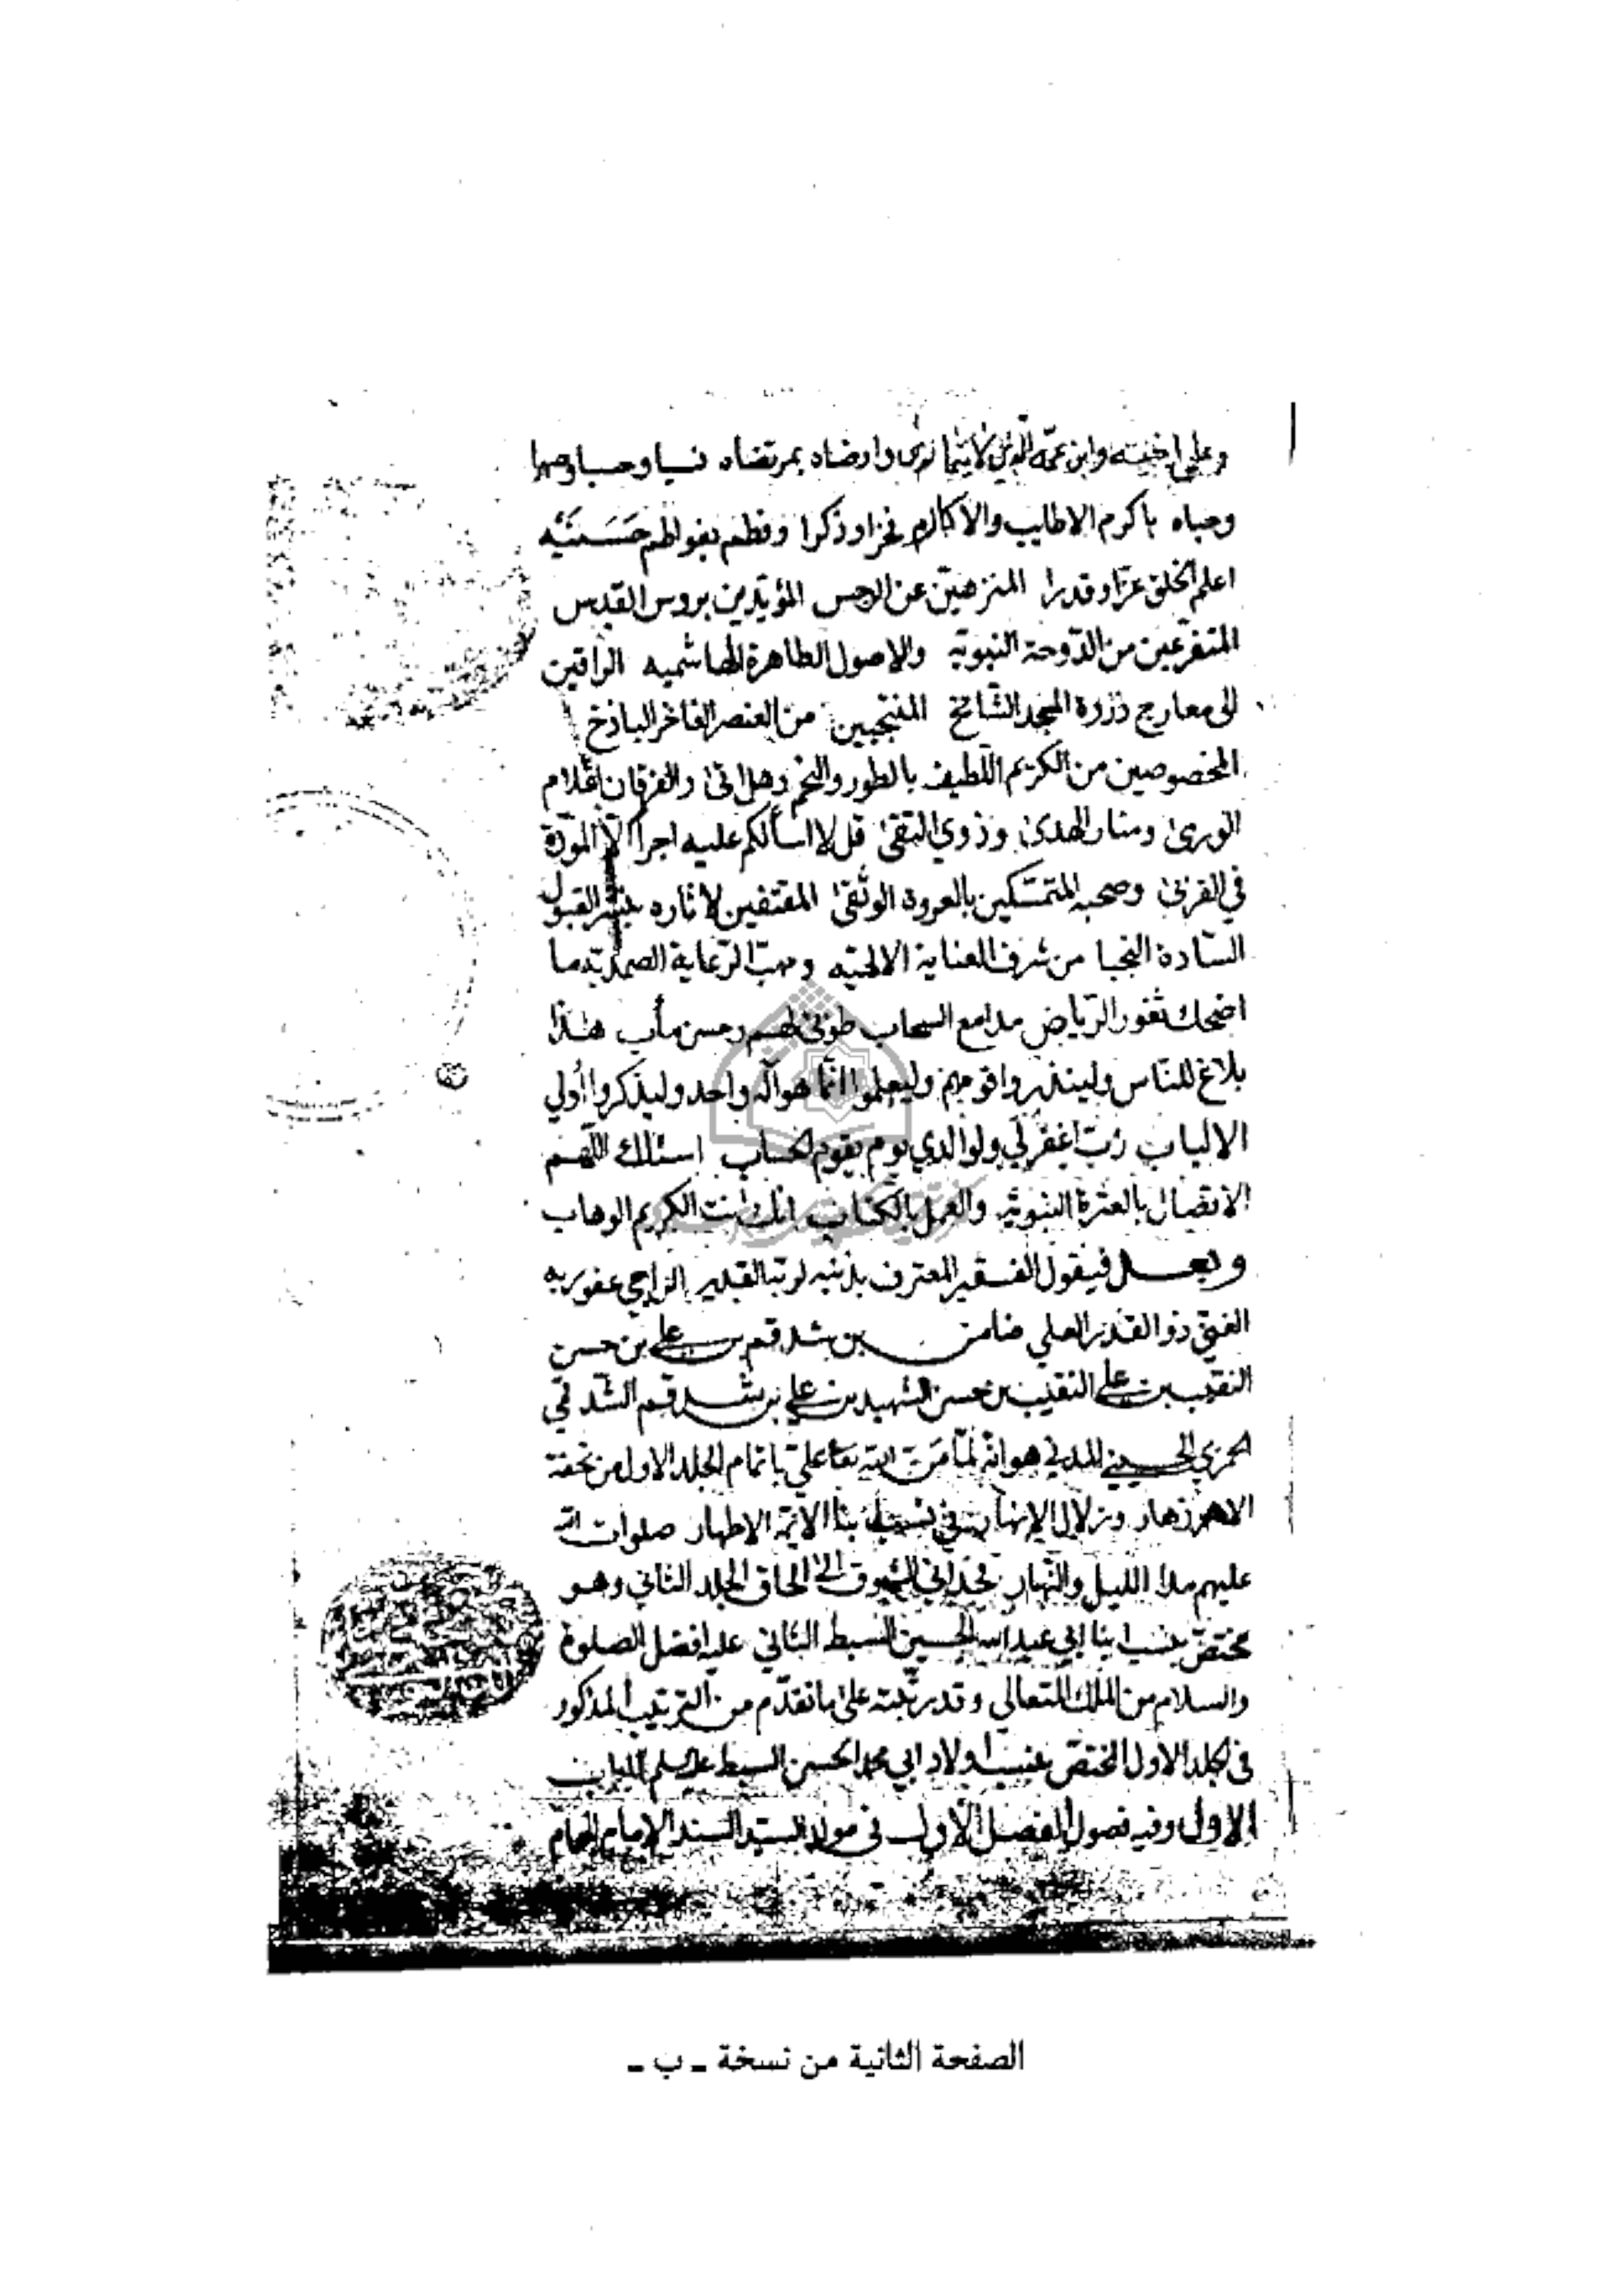 وعلى اخيه وابن عمه وارضاه بمرتضاه نسبا وحسبا وصهرا
وحباه باكرم الاطايب والاكارم فخرا وذكرا وفطم بفواطم حسنيه
اعلم الخلق عزا وقدرا المنزهين عن الرجس المؤيدين بروس القدس
المتفرعين من الدوحة النبوية والاصول الطاهرة الهاشميه الراقين
الى معارج ذروة المجد الشامخ المنتجبين من العنصر الفاخر الباذخ
المخصوصين من الكريم اللطيف بالطور والنجم وهل اتى والفرقان اعلام
الورى ومنار الهدى وذوي التقى قل لا اسألكم عليه اجرا الا المودة
في القربى وصحبه المتمسكين بالعروة الوثقى المقتفين لاثاره القبول
السادة النجبا من شرف العناية الالهيه ومهب الرعاية الصمديه ما
اضحك ثغور الرياض مدامع السحاب طوبى لهم وحسن مأب هذا
بلاغ للناس ولينذروا قومهم وليعلموا انما هو اله واحد وليذكروا أولي
الالباب رب اغفر لي ولوالدي يوم يقوم الحساب اسئلك اللهم
الاتصال بالعترة النبويه والعمل بالكتاب انك انت الكريم الوهاب
وبعد فيقول الفقير المعترف بذنبه لربه القدير الراجي عفو ربه
الغني ذو القدر العلي ضامن بن شدقم بن علي بن حسن
النقيب بن علي النقيب بن حسن الشهيد بن علي بن شدقم الشدقمي
الحمزي الحسيني المدني هو انه لما من الله تعا علي باتمام الجلد الاول من تحفة
الازهار وزلال الانهار في نسب ابنا الائمة الاطهار صلوات الله
عليهم مدا الليل والنهار الشوق الى الحاق الجلد الثاني وهو
مختص بنسب ابنا ابي عبد الله الحسين السبط الثاني عليه افضل الصلوة
والسلام من الملك المتعالي وقد رتبته على ما تقدم من الترتيب المذكور
في الجلد الاول المختص بنسب اولاد ابي محمد الحسن السبط عليه السلم الباب
الاول وفيه فصول الفصل الاول في مولد السيد السند الامام الهمام
الصفحة الثانية من نسخة - ب -